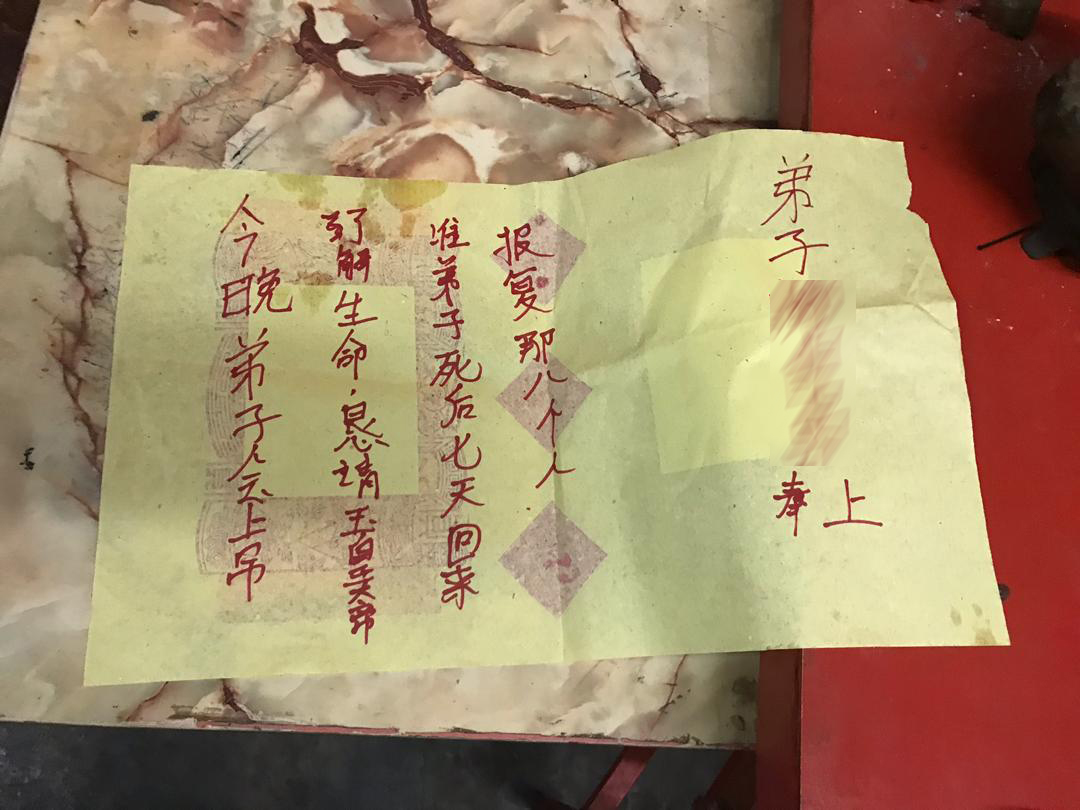 今晚弟子会上吊
到了解生命，恳请玉皇大帝
准弟子死后七天回来
报复那八个人
弟子
奉上